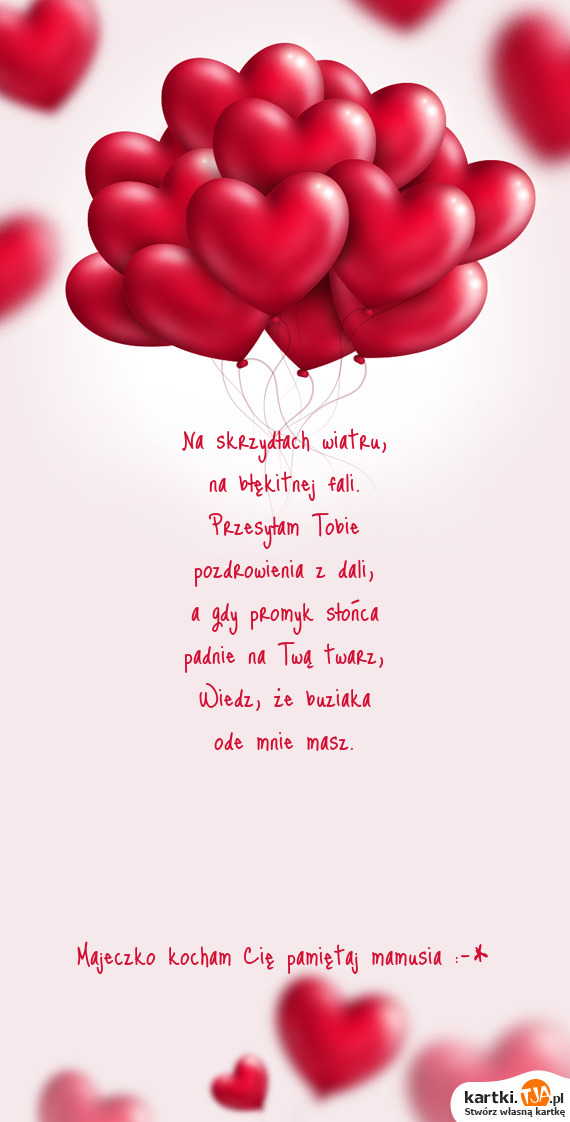 Na skrzydłach wiatru,
na błękitnej fali.
Przesyłam Tobie
pozdrowienia z dali,
a gdy promyk słońca
padnie na Twą twarz,
Wiedz, że buziaka
ode mnie masz.
Majeczko kocham Cię pamiętaj mamusia :-*
kartki.TJA.pl
Stwórz własną kartkę